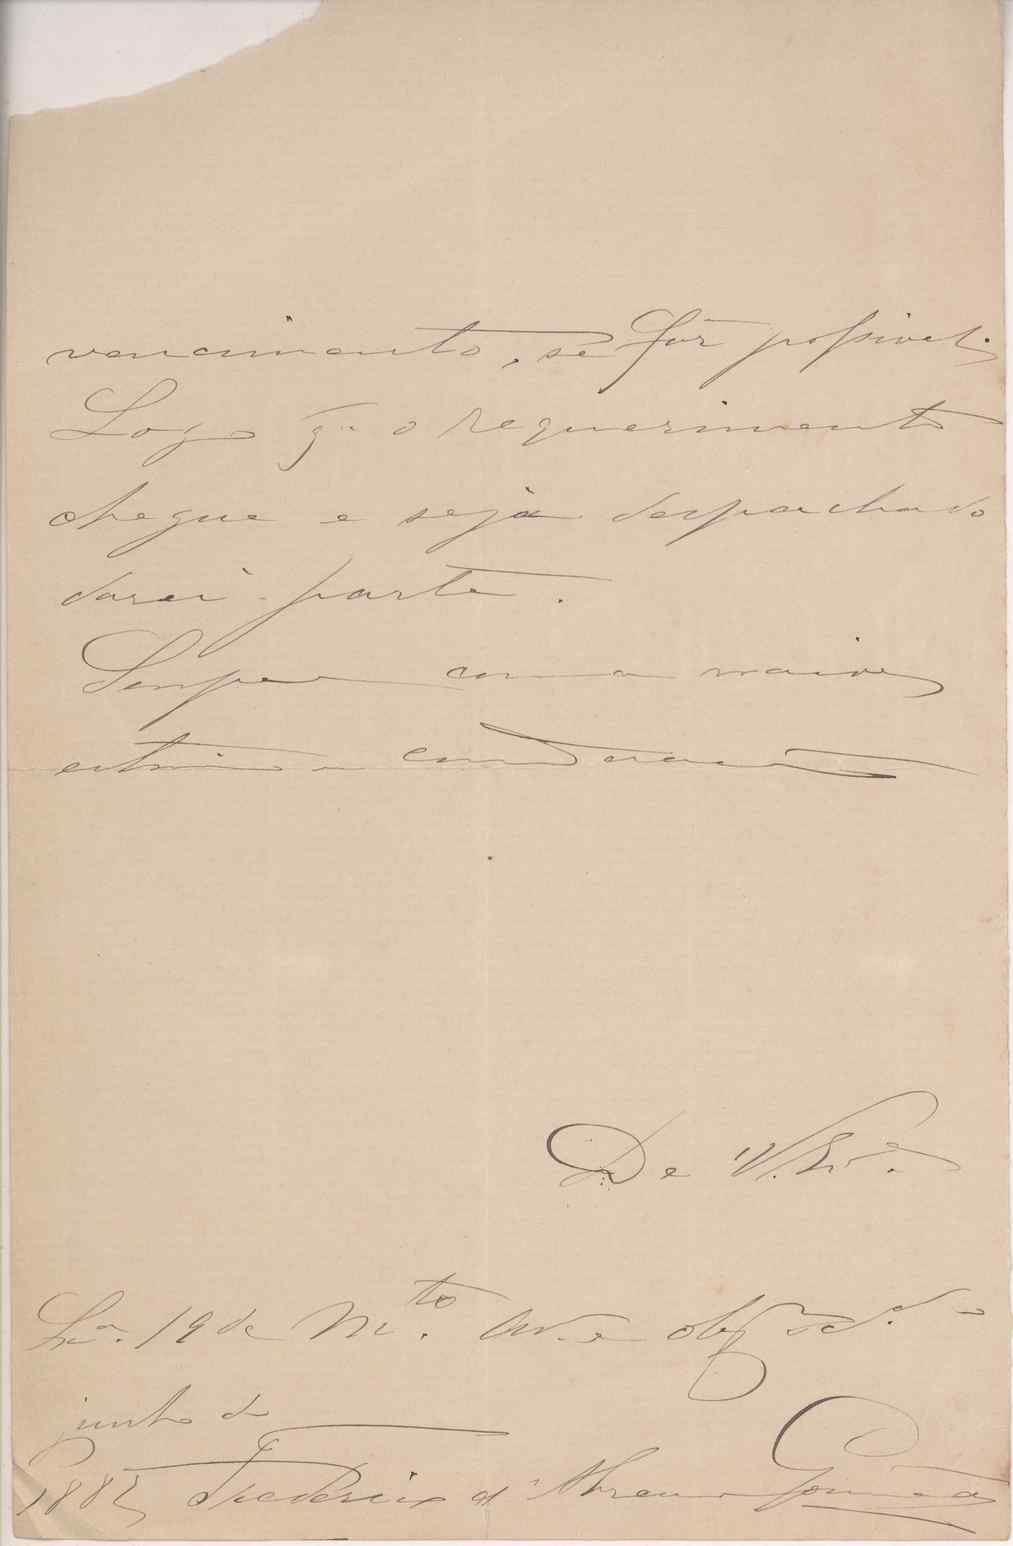 vencimento, se fôr possivel.
Logo q. o requerimento
chegue e seja despachado
darei parte.
Sempre com a maior
estima e consideração
De V. Ex.ª
Lx.ª 19 de M.to Am.e obg.do
junho de
1882 Frederico d'Abreu e Gouvêa